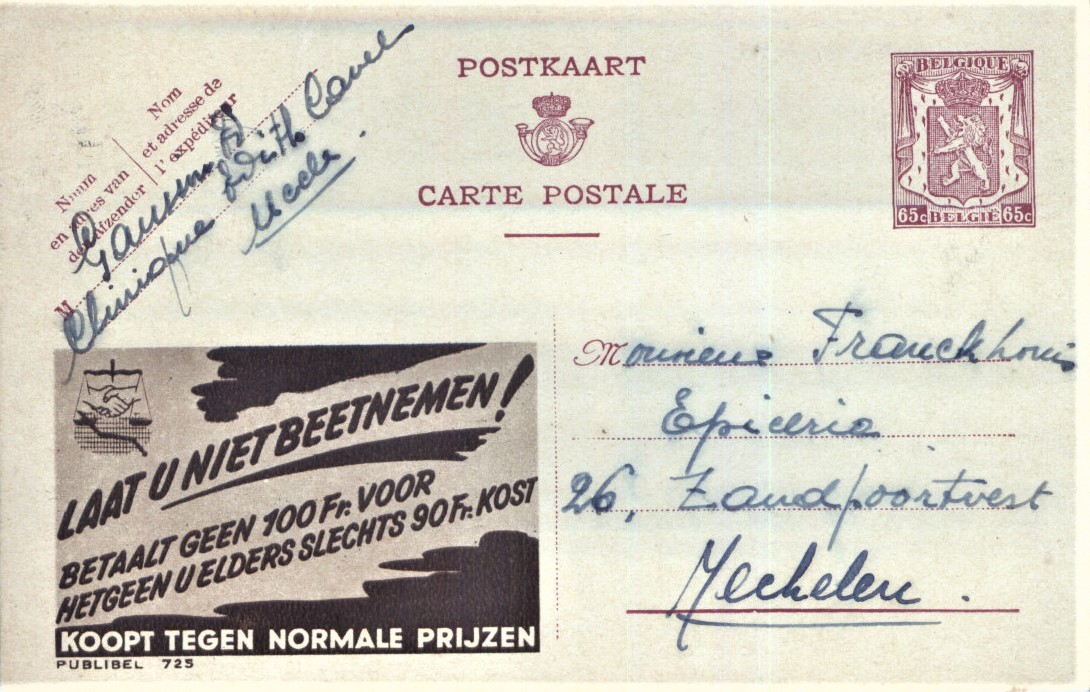 POSTKAART
CARTE POSTALE
BELGIQUE
65c BELGIË 65c
Nom
et adresse de
l'expéditeur
Naam
en adres van
de afzender
M
Clinique Edith Cavell
Uccle.
Monsieur Franckhouis
Epicerie
26, Zandpoortvest
Mechelen.
LAAT U NIET BEETNEMEN!
BETAALT GEEN 100 Fr. VOOR
HETGEEN U ELDERS SLECHTS 90 Fr. KOST
KOOPT TEGEN NORMALE PRIJZEN
PUBLIBEL 725